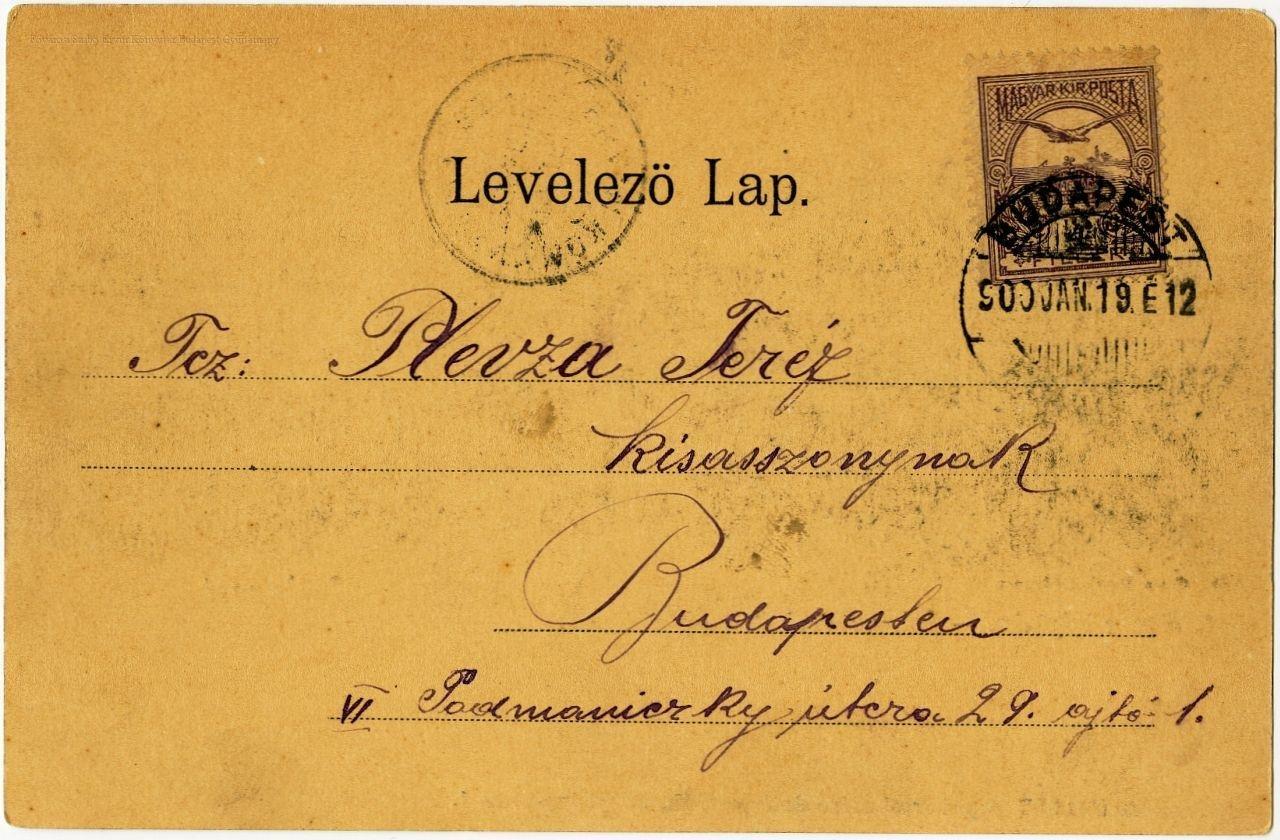 Fővárosi Szabó Ervin Könyvtár Budapest Gyűjtemény
Levelezö Lap.
MAGYAR KIR. POSTA
BUDAPEST
900 JAN. 19. E 12
Tcz: Plevza Teréz
kisasszonynak
Budapesten
VI Podmaniczky útcza 29. ajtó 1.